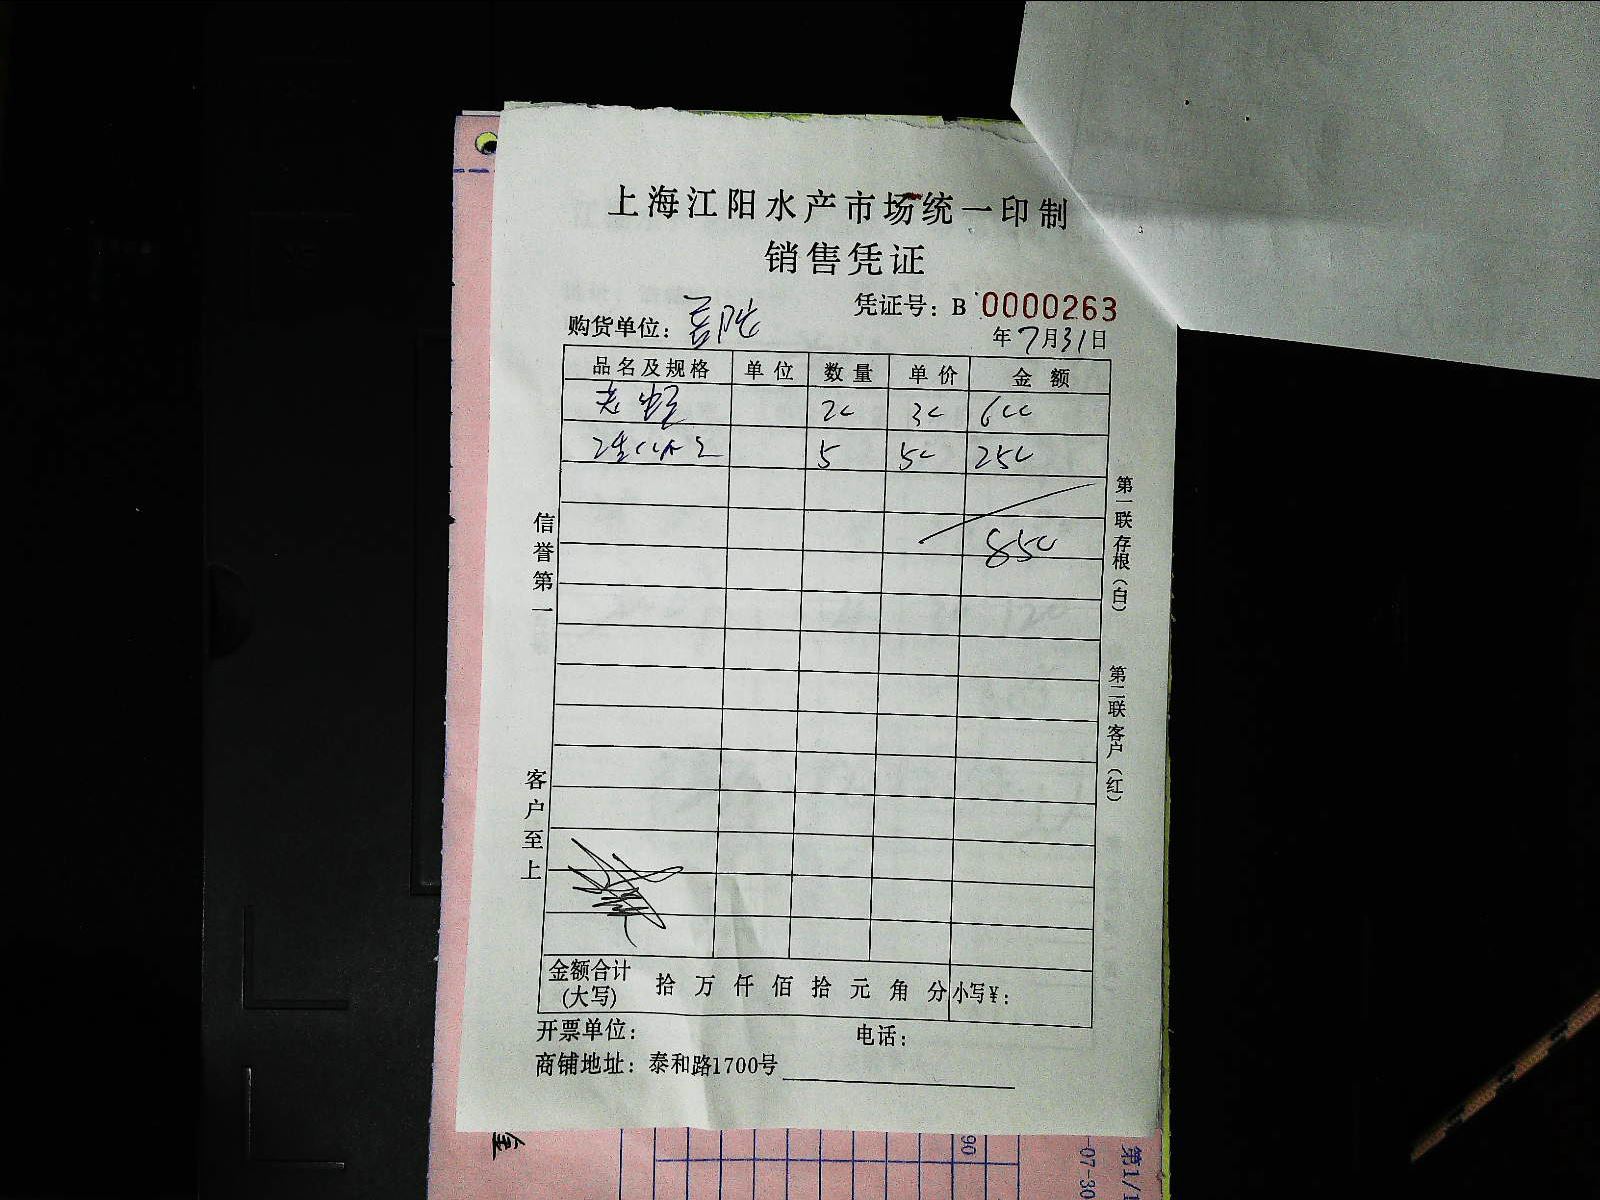 上海江阳水产市场统一印制
销售凭证
凭证号：B 0000263
购货单位：
年7月31日
品名及规格 单位 数量 单价 金额
20 30 600
5 50 250
850
信誉第一
客户至上
第一联存根（白）
第二联客户（红）
金额合计（大写） 拾 万 仟 佰 拾 元 角 分 小写¥：
开票单位： 电话：
商铺地址：泰和路1700号
90
-07-30
第1/1